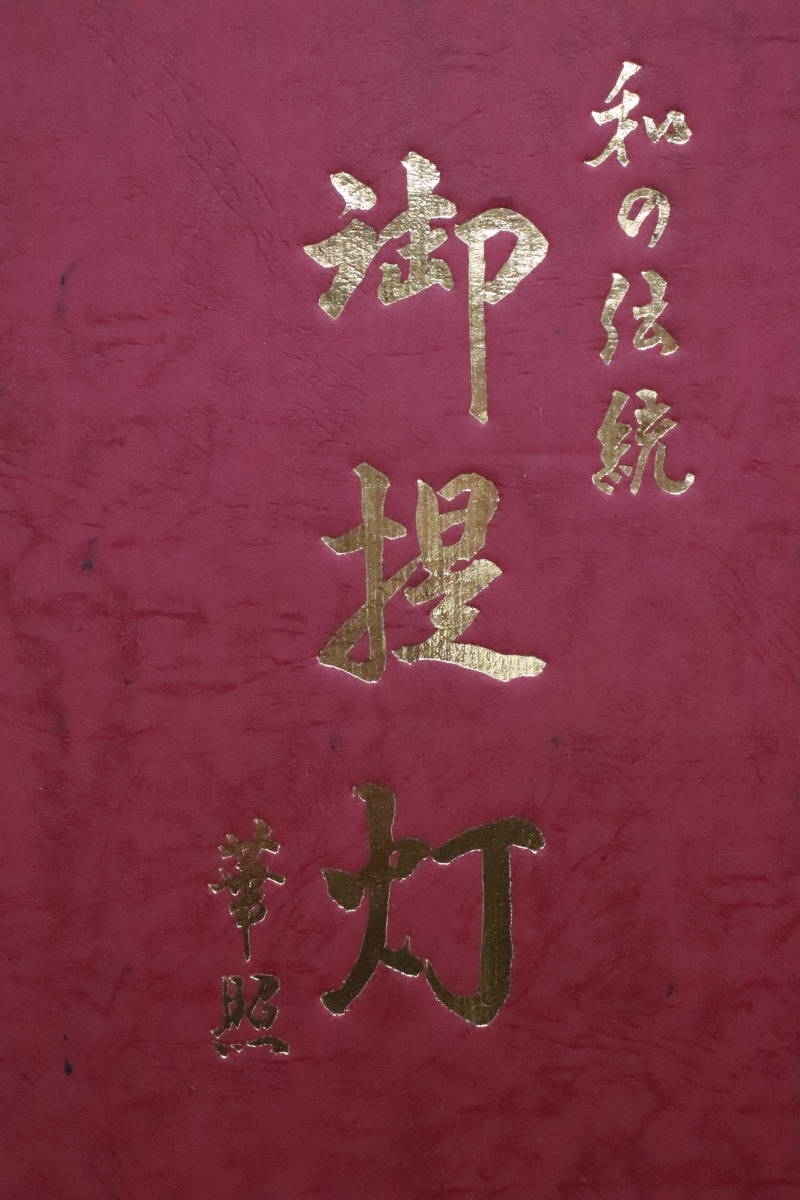 和の伝統
御提灯
華照